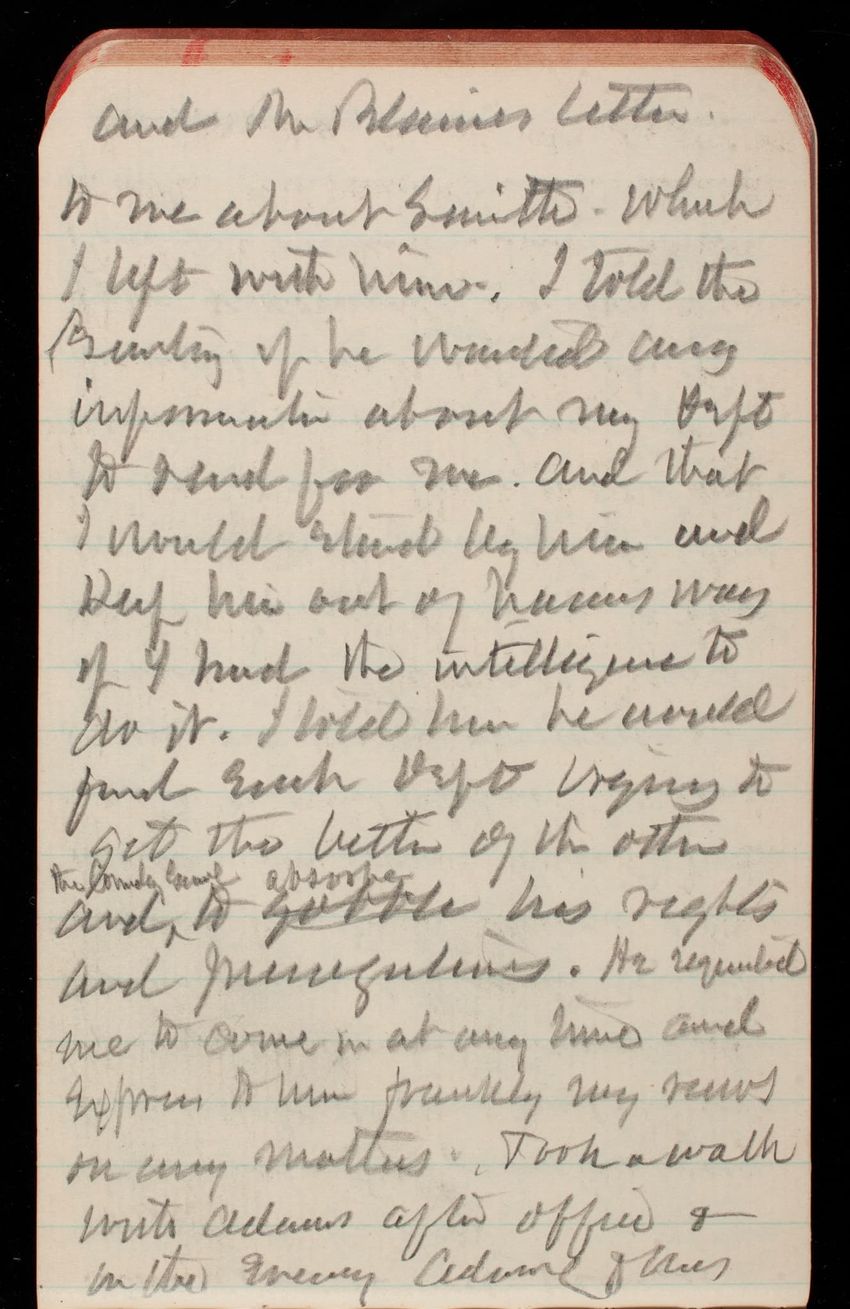 and the Blaines letter.
to me about Smith. which
I left with him. I told the
Secretary if he wanted any
information about my Dept
to send for me. and that
I would stand by him and
Keep him out of harms way
if I had the intelligence to
do it. I told him he would
find Each Dept trying to
get the better of the other
the Comdg Genl absorbe
and, to gobble his rights
and prerogatives. He requested
me to come in at any time and
Express to him frankly my views
on any matters. Took a walk
with Adams after office &
in the Evening Adams &